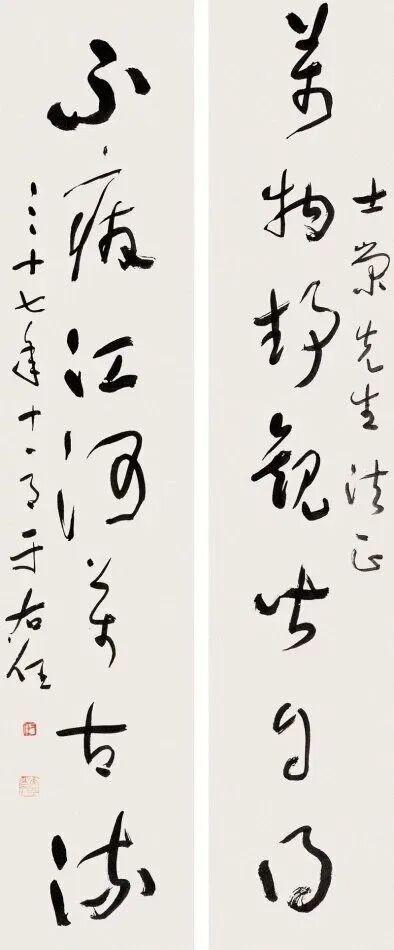 士荣先生法正
万物静观皆自得
不废江河万古流
三十七年十一月于右任